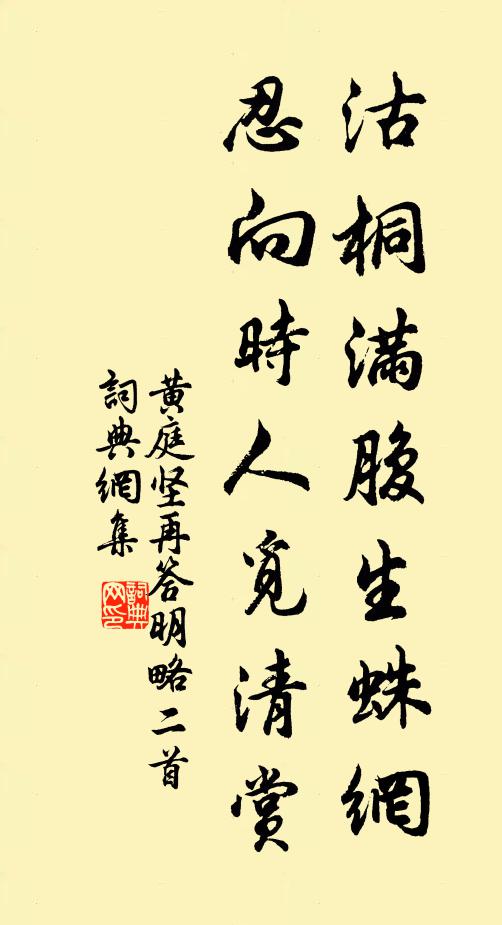 沽桐满腹生蛛網
忍向時人覓清赏
黄庭坚再答明略二首
詞典網集
詞典网印